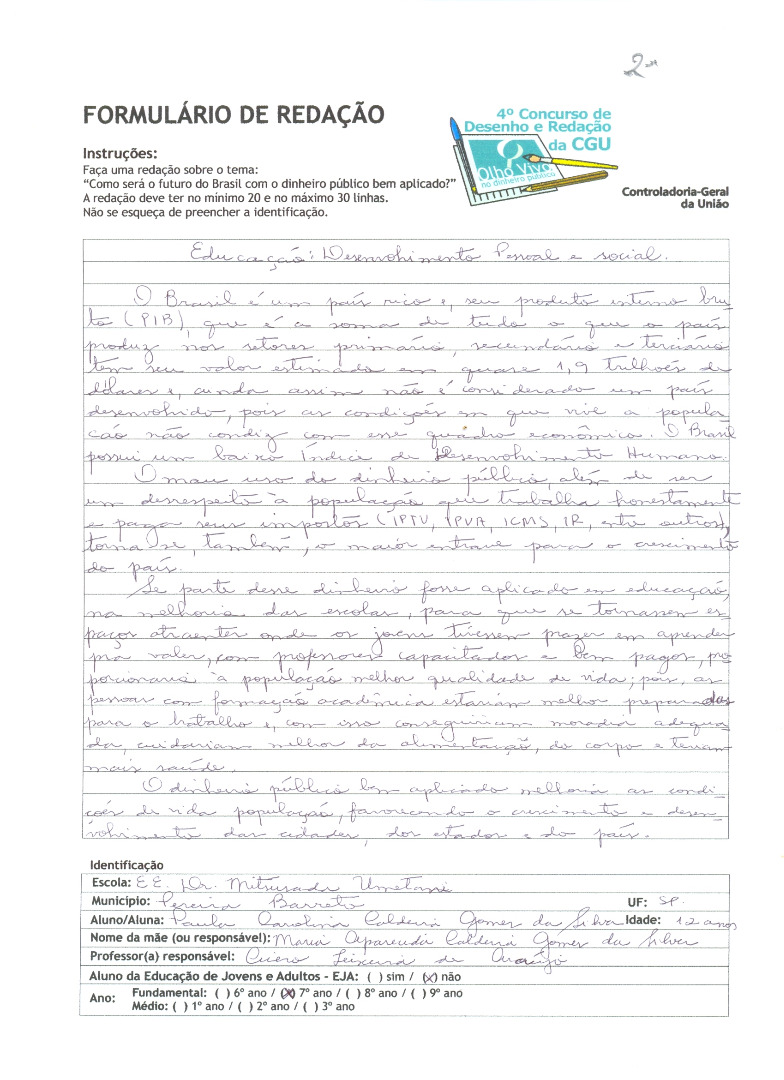 2ª
FORMULÁRIO DE REDAÇÃO
4º Concurso de
Desenho e Redação
da CGU
Olho Vivo
no dinheiro público
Controladoria-Geral
da União
Instruções:
Faça uma redação sobre o tema:
“Como será o futuro do Brasil com o dinheiro público bem aplicado?”
A redação deve ter no mínimo 20 e no máximo 30 linhas.
Não se esqueça de preencher a identificação.
Educação: Desenvolvimento Pessoal e social.
O Brasil é um país rico e, seu produto interno bru-
to (PIB), que é a soma de tudo o que o país
produz nos setores primário, secundário e terciário
tem seu valor estimado em quase 1,9 trilhões de
dólares e, ainda assim não é considerado um país
desenvolvido, pois as condições em que vive a popula-
ção não condiz com esse quadro econômico. O Brasil
possui um baixo Índice de Desenvolvimento Humano.
O mau uso do dinheiro público, além de ser
um desrespeito à população que trabalha honestamente
e paga seus impostos (IPTU, IPVA, ICMS, IR, entre outros),
torna-se, também, o maior entrave para o crescimento
do país.
Se parte desse dinheiro fosse aplicado em educação,
na melhoria das escolas, para que se tornassem es-
paços atraentes onde os jovens tivessem prazer em aprender
pra valer, com professores capacitados e bem pagos, pro-
porcionaria à população melhor qualidade de vida; pois, as
pessoas com formação acadêmica estariam melhor preparadas
para o trabalho e, com isso conseguiriam moradia adequa-
da, cuidariam melhor da alimentação, do corpo e teriam
mais saúde.
O dinheiro público bem aplicado melhoria as condi-
ções de vida população, favorecendo o crescimento e desen-
volvimento das cidades, dos estados e do país.
Identificação
Escola: EE. Dr. Mitsusada Umetani
Município: Pereira Barreto UF: SP.
Aluno/Aluna: Paula Carolina Caldeira Gomes da Silva Idade: 12 anos
Nome da mãe (ou responsável): Maria Aparecida Caldeira Gomes da Silva
Professor(a) responsável: Cicero Teixeira de Araújo
Aluno da Educação de Jovens e Adultos - EJA: ( ) sim / (x) não
Ano: Fundamental: ( ) 6º ano / (x) 7º ano / ( ) 8º ano / ( ) 9º ano
Médio: ( ) 1º ano / ( ) 2º ano / ( ) 3º ano